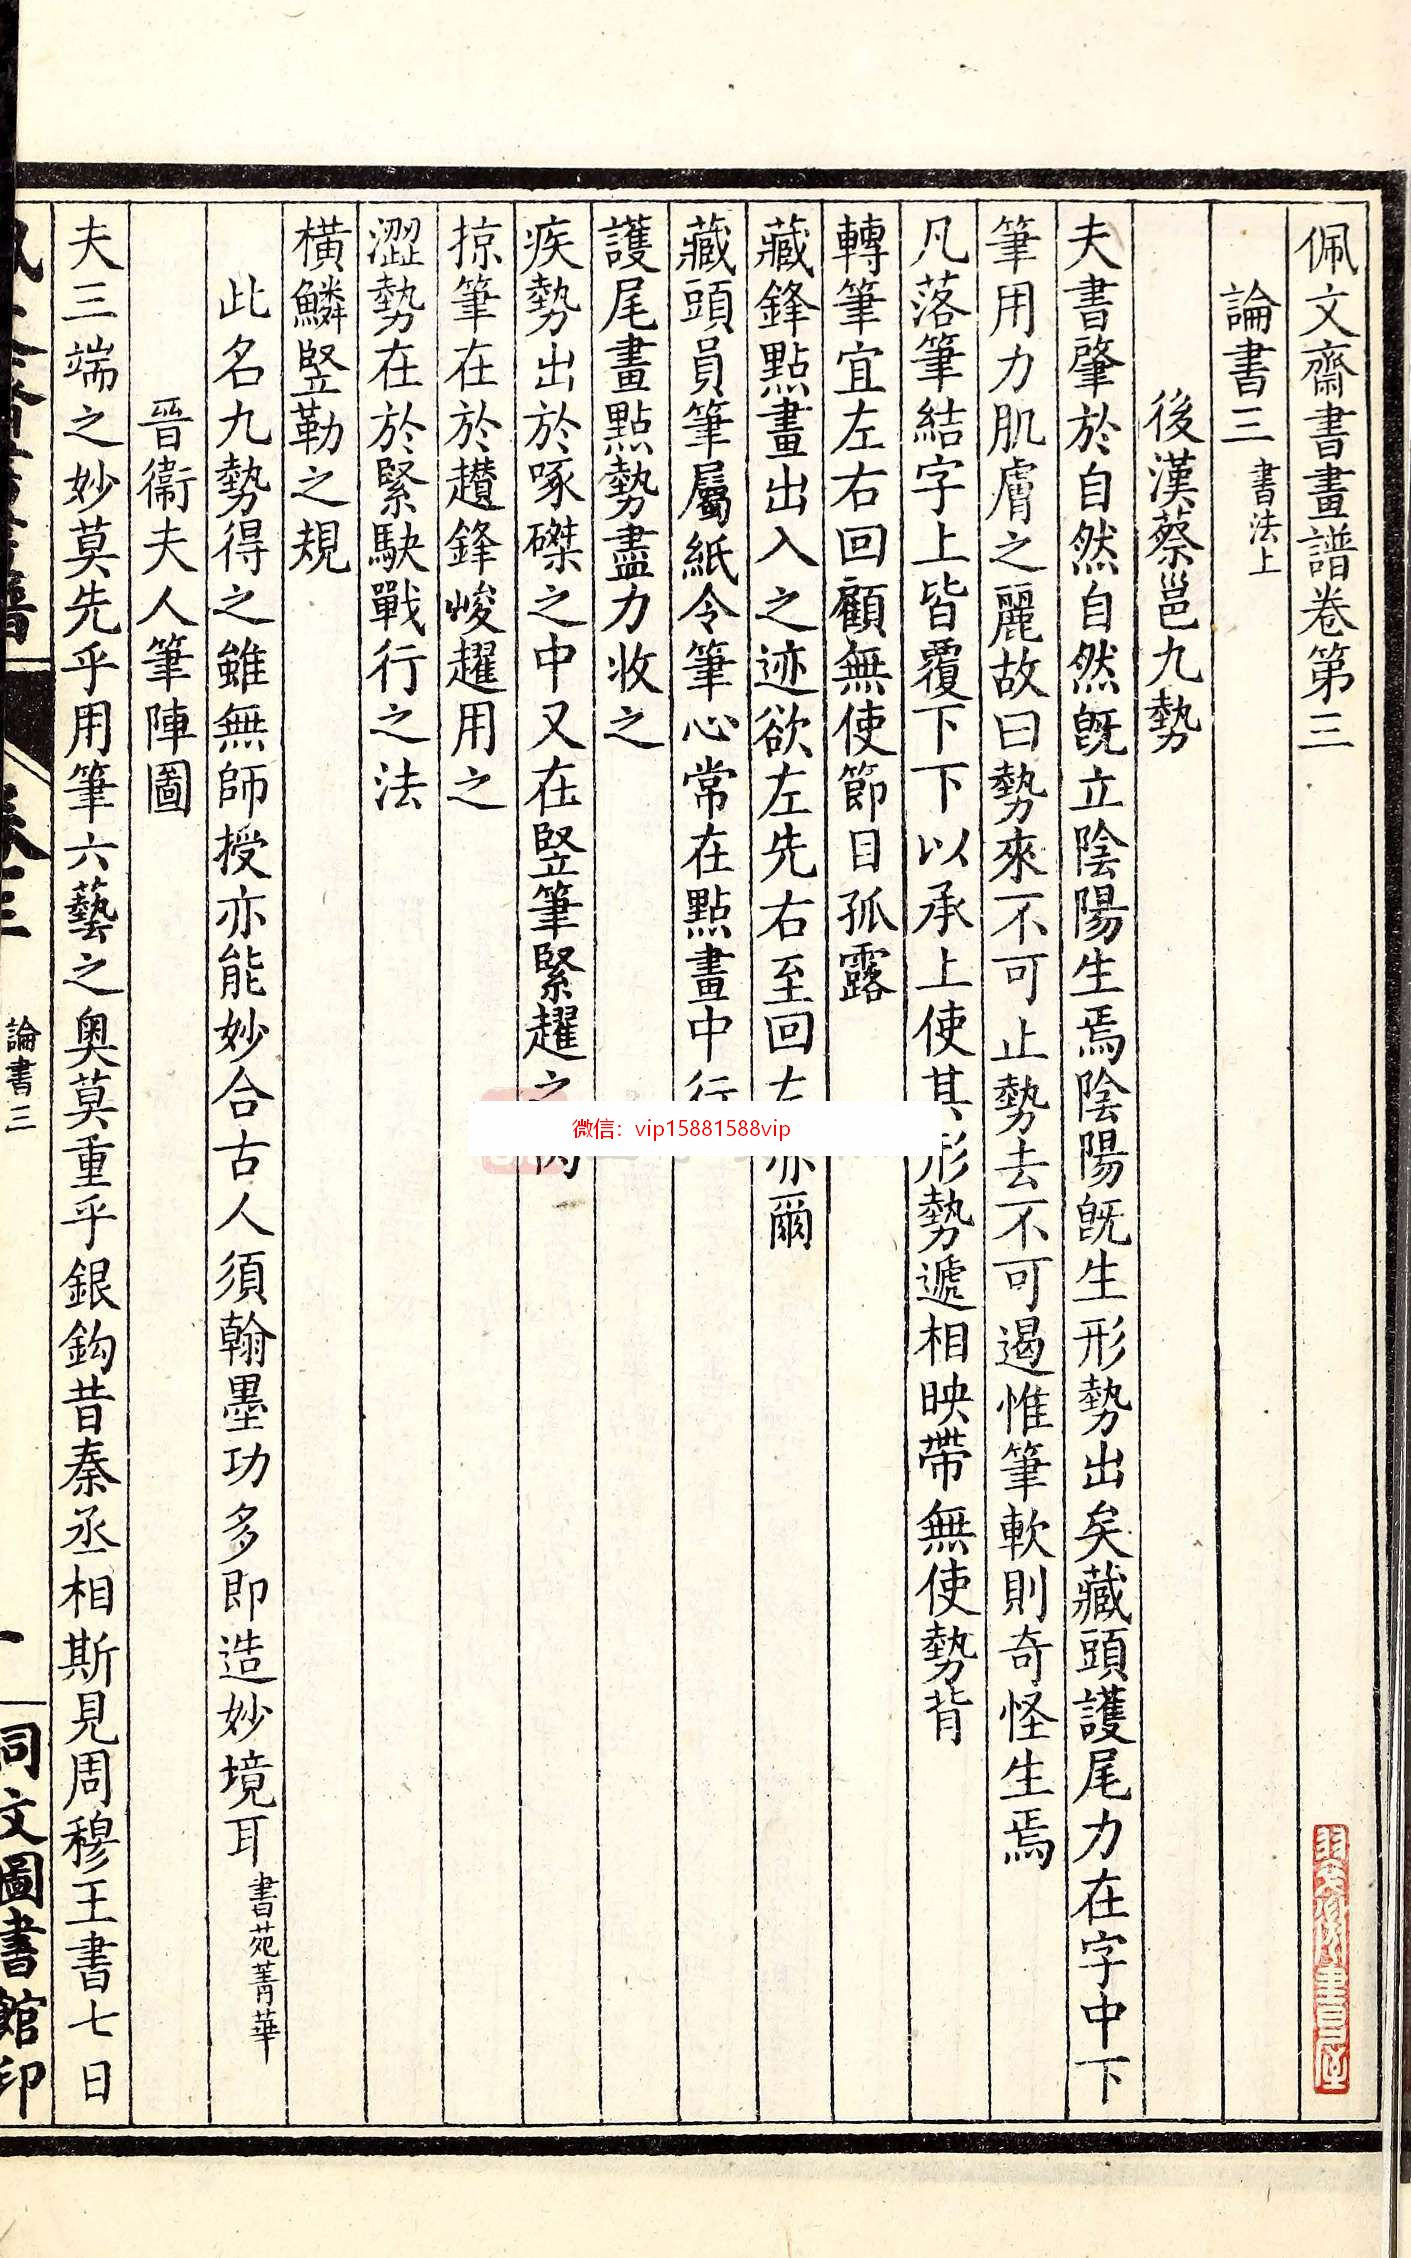 佩文齋書畫譜卷第三
論書三 書法上
後漢蔡邕九勢
夫書肇於自然自然旣立陰陽生焉陰陽旣生形勢出矣藏頭護尾力在字中下
筆用力肌膚之麗故曰勢來不可止勢去不可遏惟筆軟則奇怪生焉
凡落筆結字上皆覆下下以承上使其形勢遞相映帶無使勢背
轉筆宜左右回顧無使節目孤露
藏鋒點畫出入之迹欲左先右至回左亦爾
藏頭員筆屬紙令筆心常在點畫中行
護尾畫點勢盡力收之
疾勢出於啄磔之中又在竪筆緊趯之內
掠筆在於趲鋒峻趯用之
澀勢在於緊駃戰行之法
橫鱗竪勒之規
此名九勢得之雖無師授亦能妙合古人須翰墨功多即造妙境耳 書苑菁華
晉衞夫人筆陣圖
夫三端之妙莫先乎用筆六藝之奧莫重乎銀鈎昔秦丞相斯見周穆王書七日
卷三
論書三
一
同文圖書館印
微信：vip15881588vip